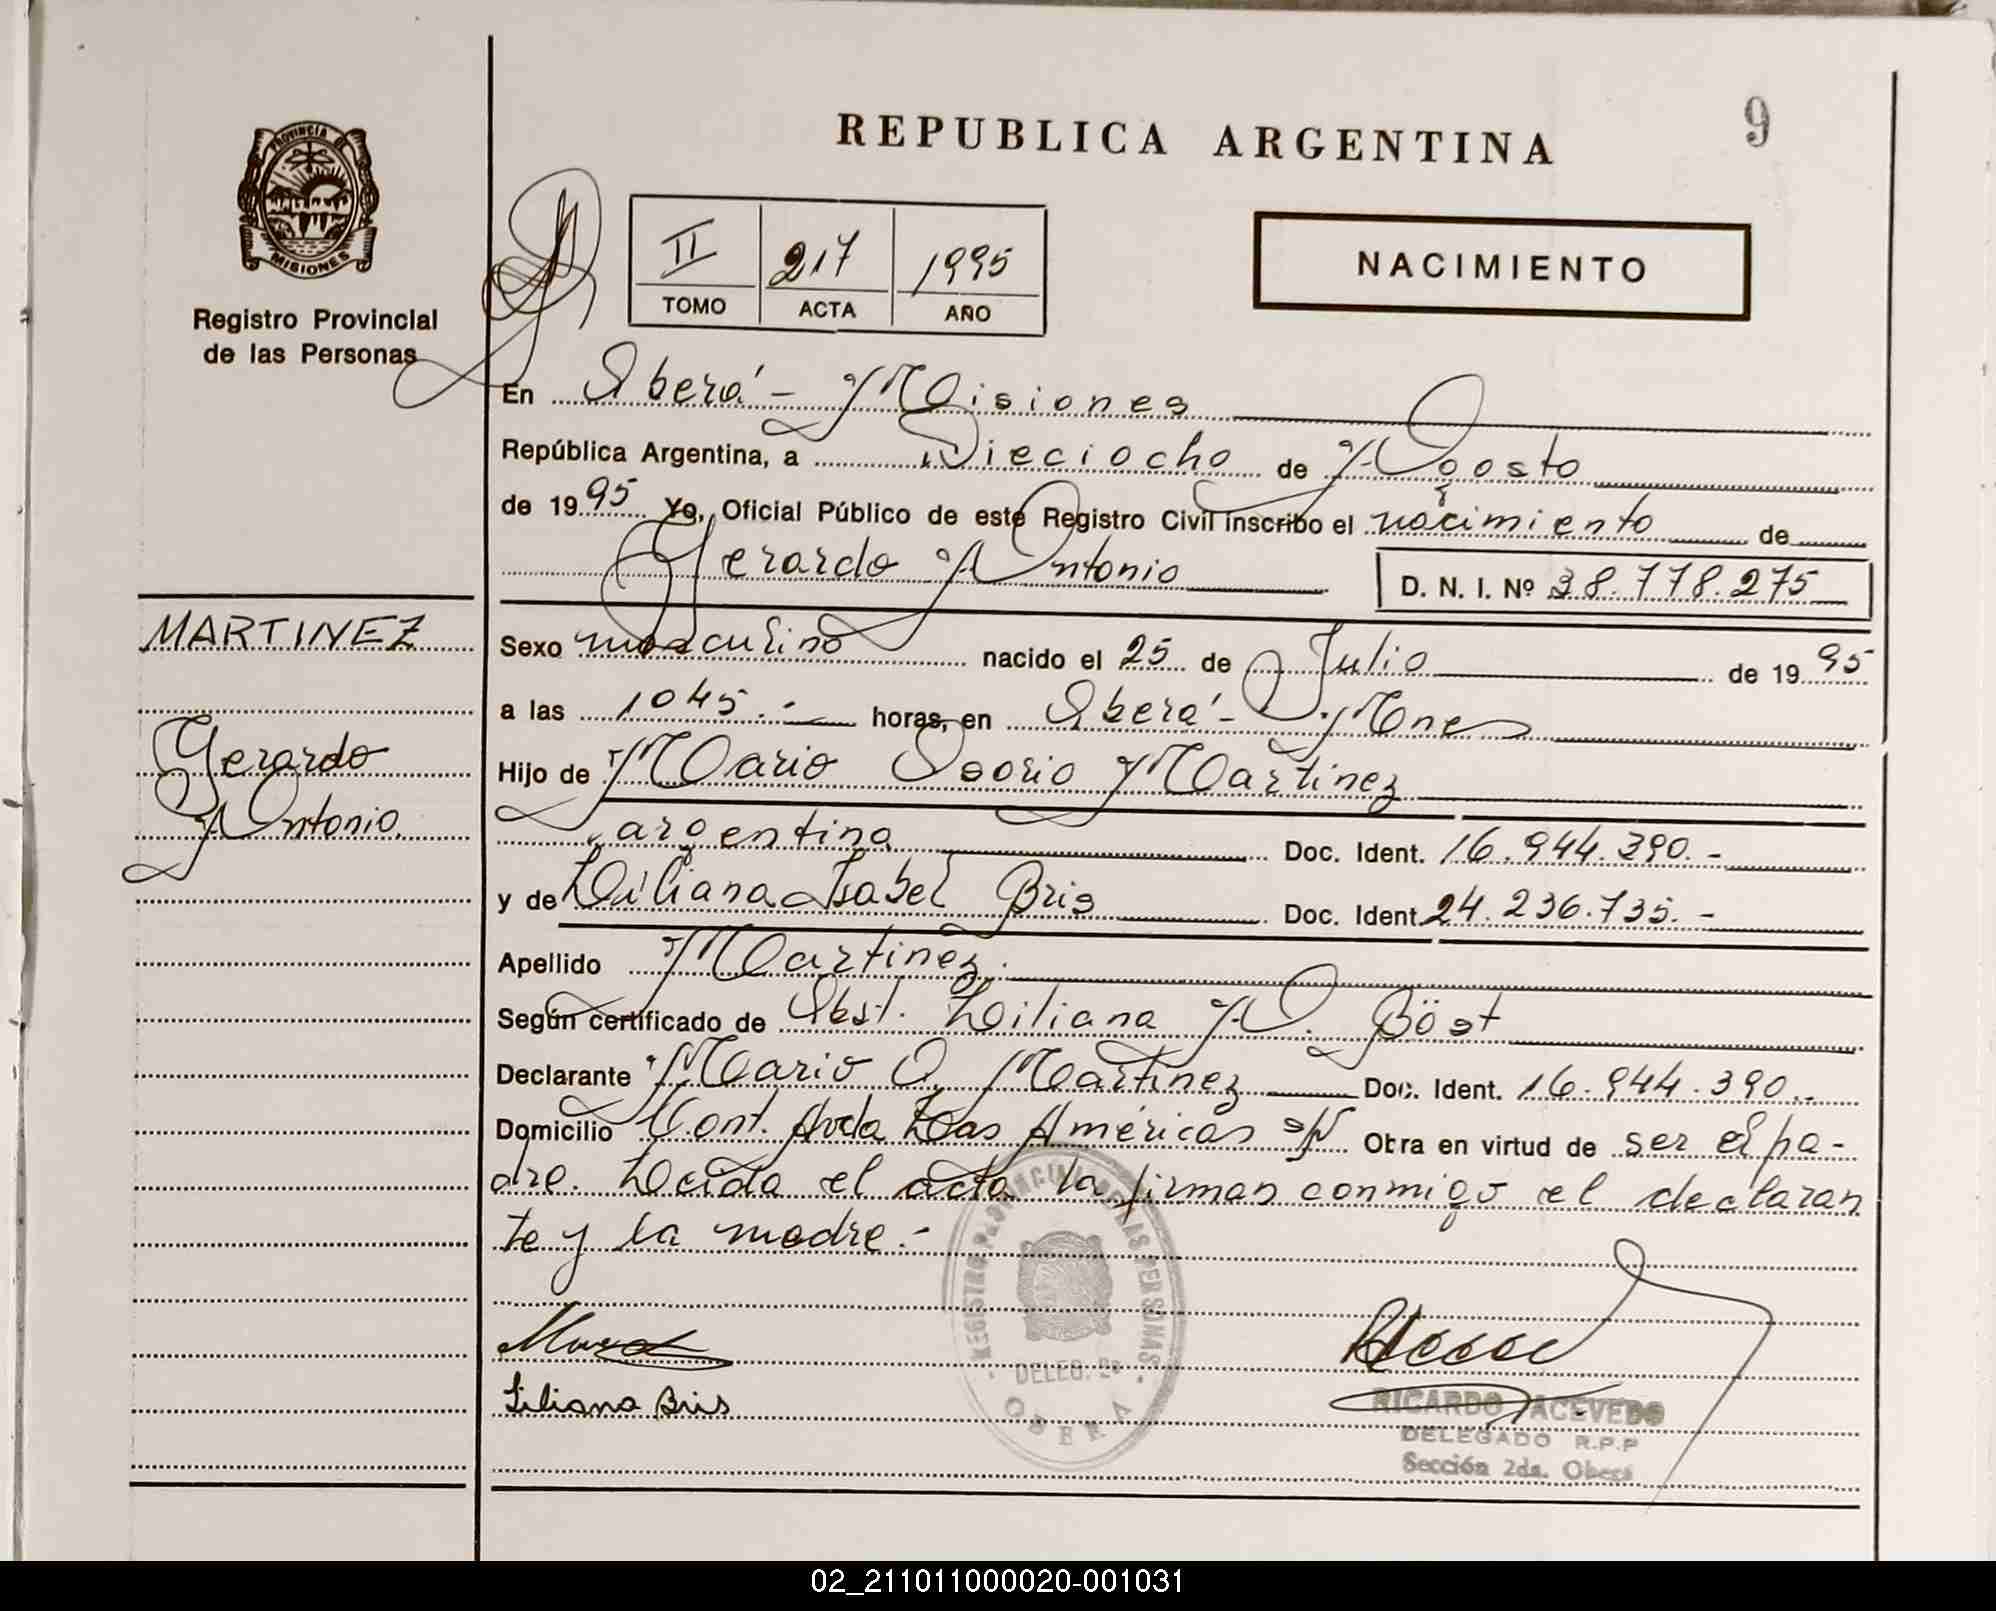 REPUBLICA ARGENTINA
9
PROVINCIA DE
MISIONES
Registro Provincial
de las Personas
II 217 1995
TOMO ACTA AÑO
NACIMIENTO
En Oberá - Misiones
República Argentina, a Dieciocho de Agosto
de 1995 Yo, Oficial Público de este Registro Civil inscribo el nacimiento de
Gerardo Antonio D. N. I. Nº 38.778.275
MARTINEZ
Gerardo
Antonio
Sexo masculino nacido el 25 de Julio de 1995
a las 1045.- horas, en Oberá - Mnes
Hijo de Mario Martinez
argentina Doc. Ident. 16.944.390.-
y de Liliana Isabel Bris Doc. Ident. 24.236.735.-
Apellido Martinez.
Según certificado de Obst. Liliana A. Böst
Declarante Mario O. Martinez Doc. Ident. 16.944.390.-
Domicilio Cont. Avda Las Américas s/N Obra en virtud de ser el pa-
dre. Leída el acta la firman conmigo el declaran
te y la madre.-
Liliana Bris
REGISTRO PROVINCIAL DE LAS PERSONAS
DELEG. 2a
OBERA
RICARDO ACEVEDO
DELEGADO R.P.P
Sección 2da. Oberá
02_211011000020-001031